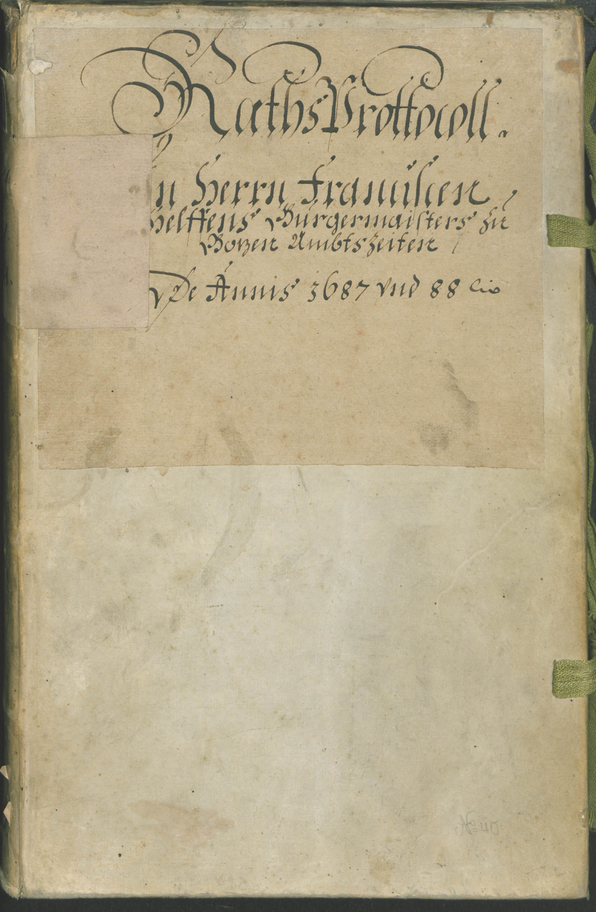 Raths Prottocoll.
n Herrn Francisien
helffens Burgermaisters zu
Bozen Ambtszeiten
De Annis 1687 vnd 88